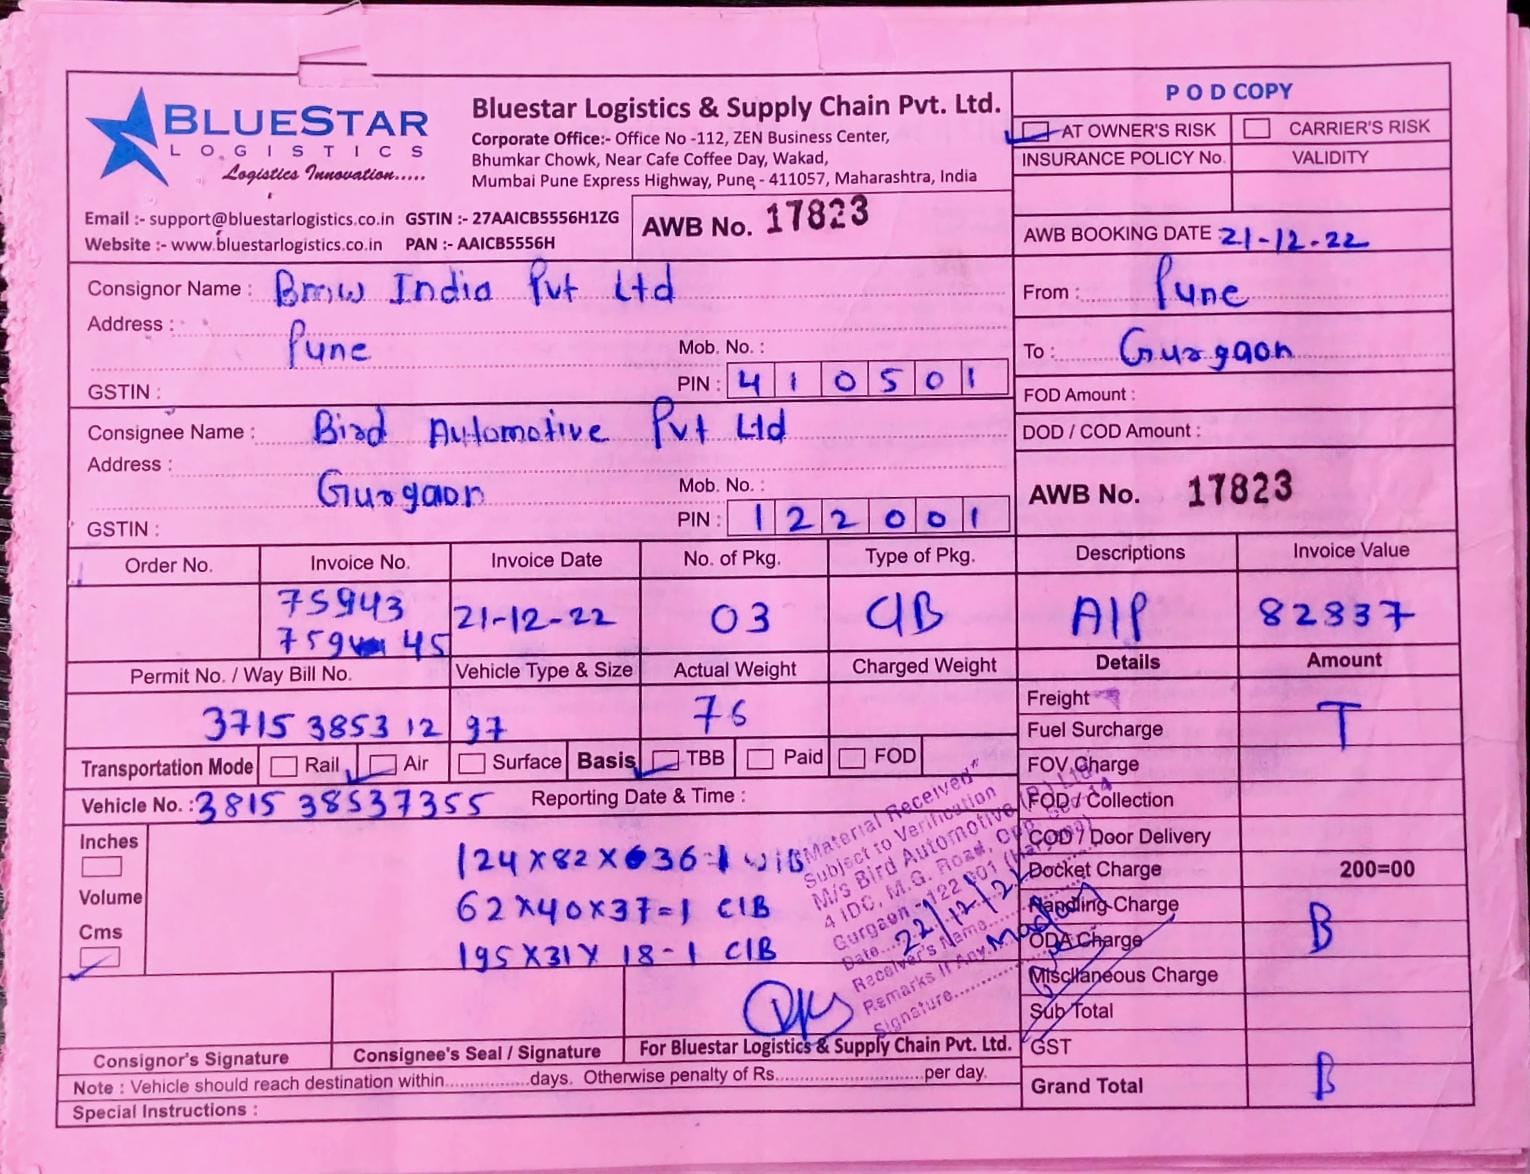 BLUESTAR
LOGISTICS
Logistics Innovation.....
Bluestar Logistics & Supply Chain Pvt. Ltd.
Corporate Office:- Office No -112, ZEN Business Center,
Bhumkar Chowk, Near Cafe Coffee Day, Wakad,
Mumbai Pune Express Highway, Pune - 411057, Maharashtra, India
Email :- support@bluestarlogistics.co.in GSTIN :- 27AAICB5556H1ZG
Website :- www.bluestarlogistics.co.in PAN :- AAICB5556H
AWB No. 17823
POD COPY
AT OWNER'S RISK CARRIER'S RISK
INSURANCE POLICY No. VALIDITY
AWB BOOKING DATE 21-12-22
Consignor Name : Bmw India Pvt Ltd
Address :
Pune
Mob. No. :
GSTIN :
PIN : 410501
From : Pune
To : Gurgaon
FOD Amount :
DOD / COD Amount :
Consignee Name : Bird Automotive Pvt Ltd
Address :
Gurgaon
Mob. No. :
GSTIN :
PIN : 122001
AWB No. 17823
Order No. Invoice No. Invoice Date No. of Pkg. Type of Pkg. Descriptions Invoice Value
75943 21-12-22 03 CIB AIP 82837
759 45
Permit No. / Way Bill No. Vehicle Type & Size Actual Weight Charged Weight Details Amount
3715 3853 12 97 76
Transportation Mode Rail Air Surface Basis TBB Paid FOD
Vehicle No. : 3815 38537355 Reporting Date & Time :
Inches
Volume
Cms
124X82X636=1 WIB
62X40X37=1 CIB
195X31X18-1 CIB
Material Received
Subject to Verification
M/s Bird Automotive (P) Ltd
4 IDC, M.G. Road, Opp. Sec-14
Gurgaon - 122 001 (Haryana)
Date... 22/12/22
Receiver's Name......
Remarks If Any....
Signature..........
Freight
Fuel Surcharge T
FOV Charge
FOD / Collection
COD / Door Delivery
Docket Charge 200=00
Handling Charge
ODA Charge B
Miscllaneous Charge
Sub Total
GST
Grand Total B
Consignor's Signature Consignee's Seal / Signature For Bluestar Logistics & Supply Chain Pvt. Ltd.
Note : Vehicle should reach destination within.................days. Otherwise penalty of Rs..............................per day.
Special Instructions :